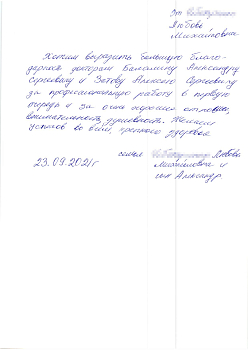 От
Любови
Михайловны
Хотим выразить большую благо-
дарность докторам Александру
Сергеевичу и Зотову Алексею Сергеевичу
за профессиональную работу в первую
очередь и за очень хорошее отношение,
внимательность, душевность. Желаем
успехов во всём, крепкого здоровья.
семья Любовь
23.09.2021г Михайловна и
сын Александр